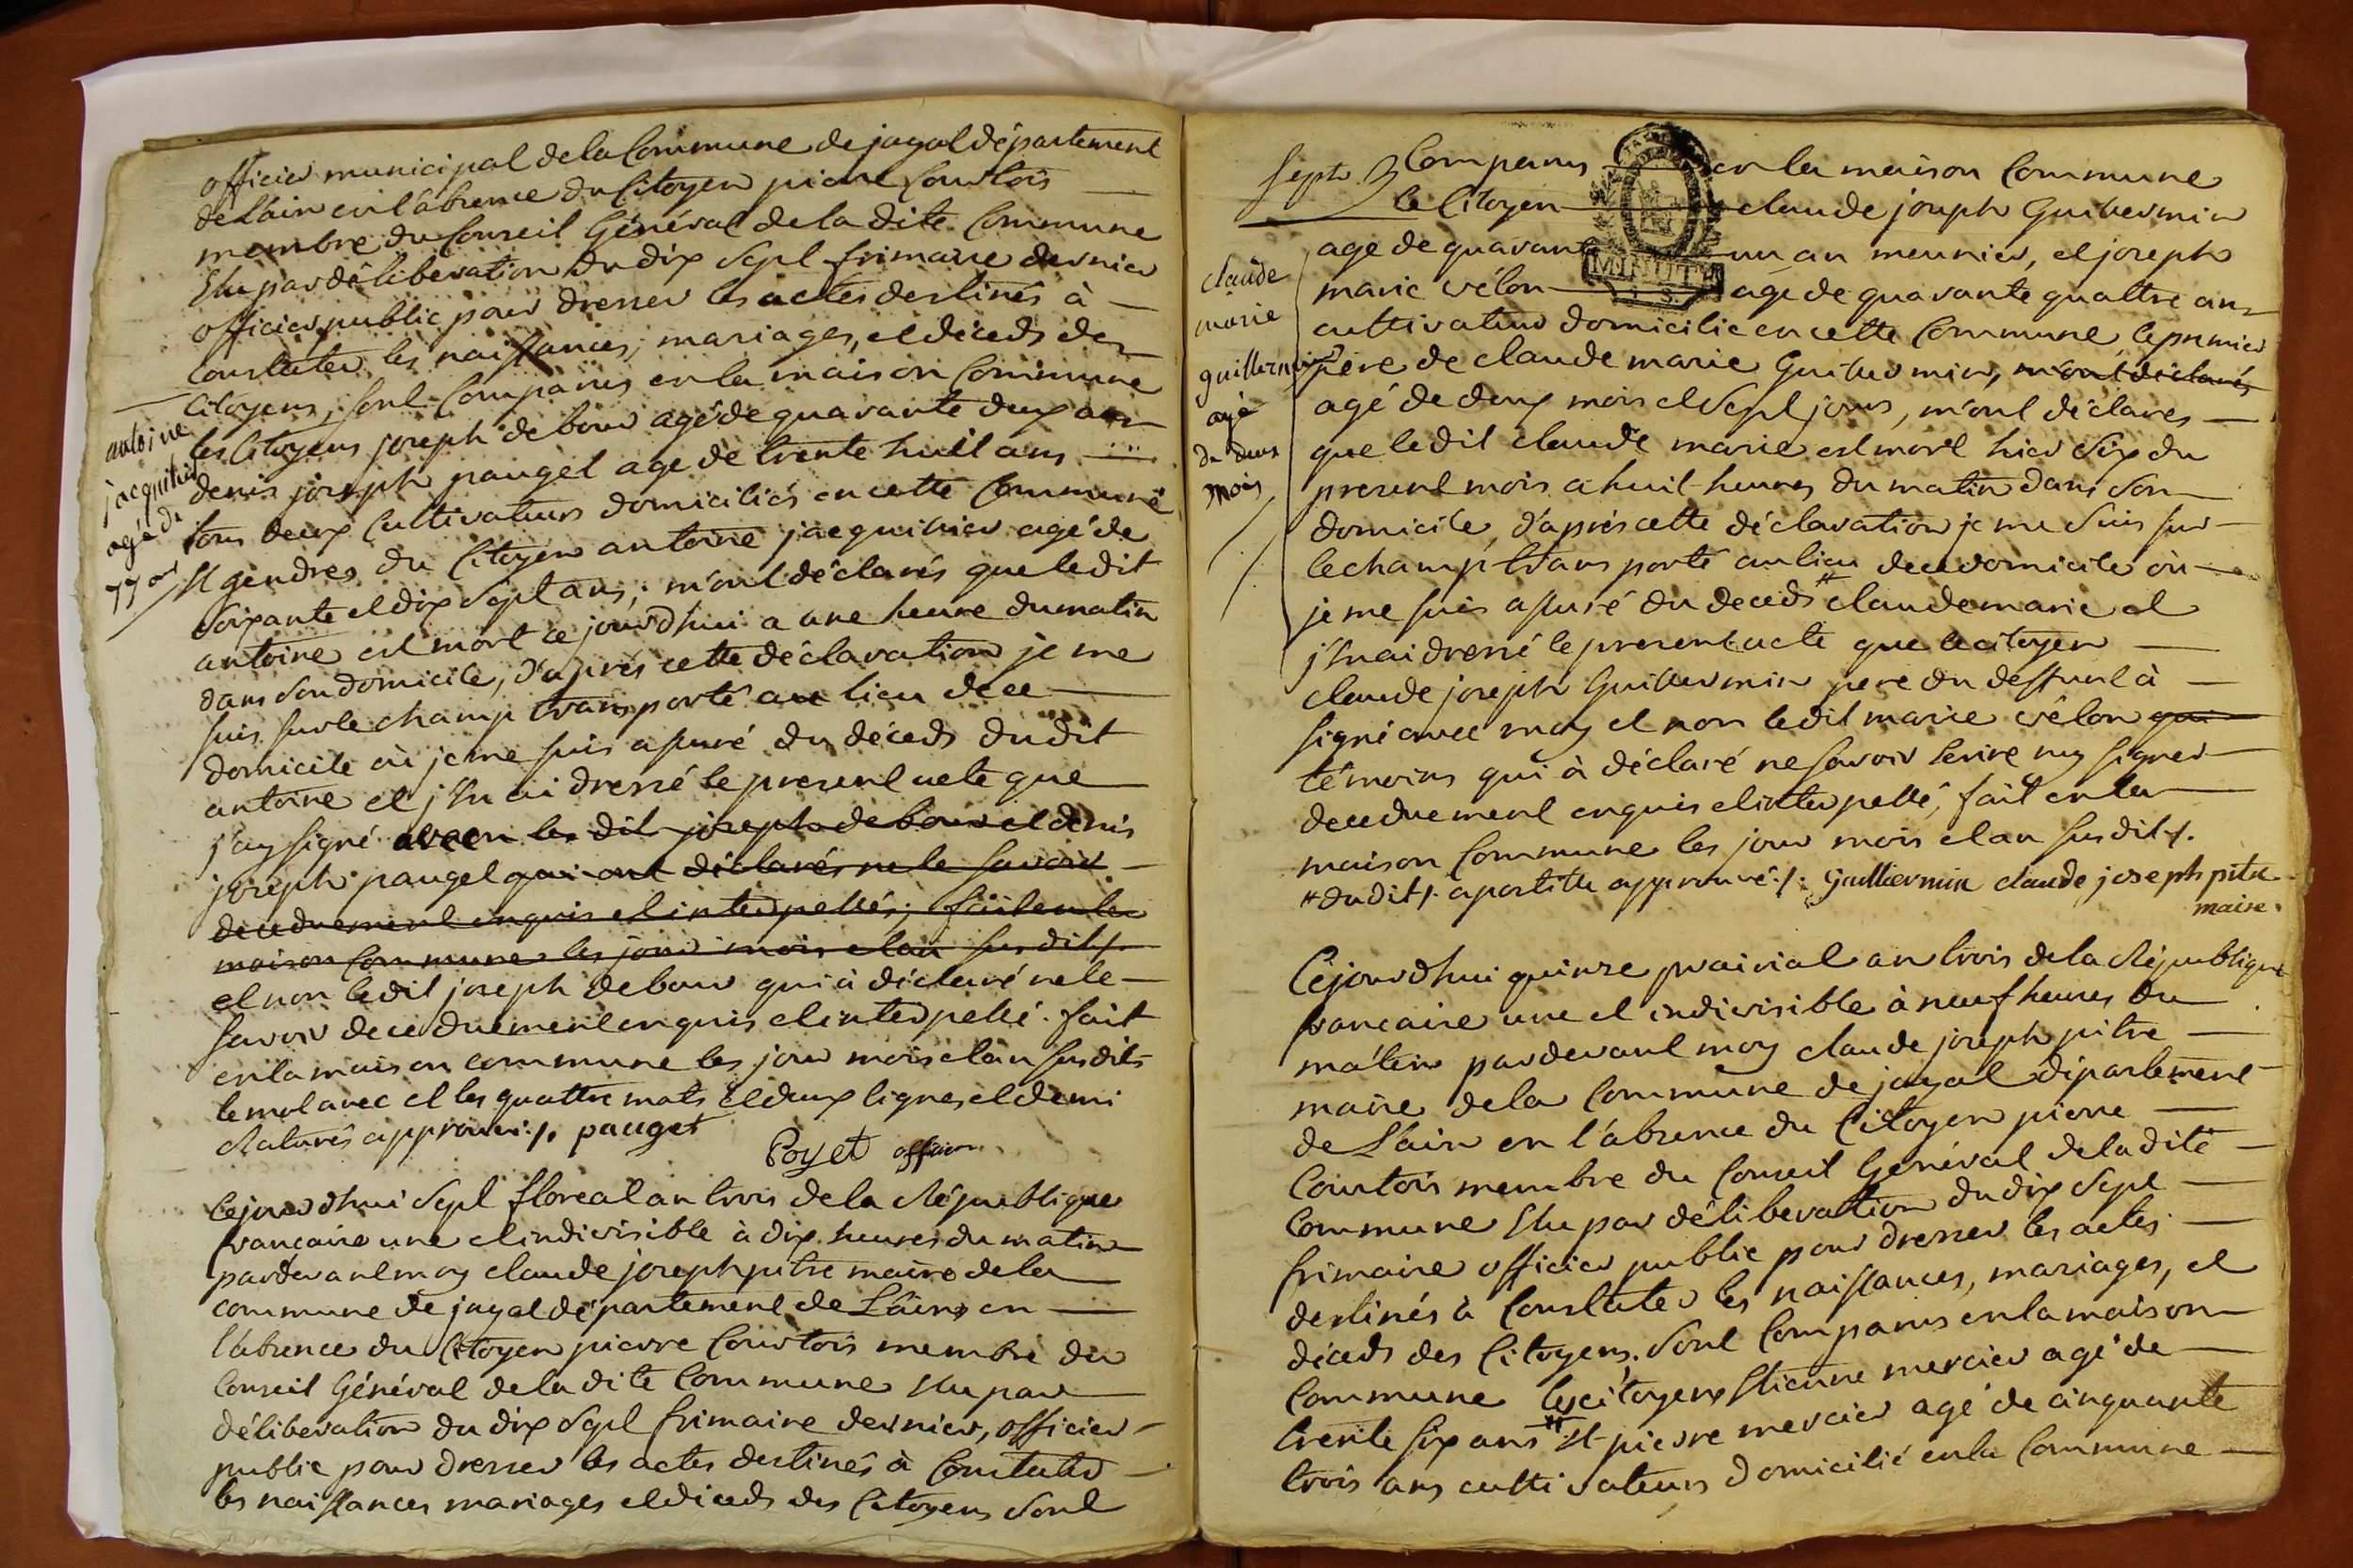 officier municipal de la Commune de jayat département
de L'ain en l'absence du Citoyen pierre Courtois
membre du Conseil Général de la dite Commune
Elu par délibération du dix Sept frimaire dernier
officier public pour dresser les actes destinés à
Constater les naissances, mariages, et décèds des
Citoyens, sont Comparus en la maison Commune
les Citoyens joseph debour agé de quarante deux ans
denis joseph pauget age de trente huit ans
tous deux Cultivateurs domiciliés en cette Commune
Et gendres du Citoyen antoine jacquilier agé de
soixante et dix Sept ans, m'ont déclarés que le dit
antoine est mort ce jourd'hui a une heure du matin
dans son domicile, d'après cette déclaration je me
suis sur le champ transporté au lieu de ce
domicile où je me suis assuré du décèds du dit
antoine et j'En ai dressé le present acte que
j'ay signé avec les dit joseph debour et denis
joseph pauget qui ont déclarés ne le savoir
de ce duement enquis et interpellés, fait en la
maison Commune les jour mois et an susdits/.
et non le dit joseph debour qui à déclaré ne le
savoir de ce duement enquis et interpellé. fait
en la maison commune les jour mois et an susdits
le mot avec et les quattre mots et deux lignes et demi
Raturés approuvé ./. pauget
Poyet officier
antoine
jacquilier
agé de
77 ans
Cejourd'hui Sept floreal an trois de la République
francaise une et indivisible à dix heures du matin
pardevant moy claude joseph pitre maire de la
commune de jayat département de L'ain en
l'absence du Citoyen pierre Courtois membre du
Conseil Général de la dite Commune Elu par
délibération du dix Sept frimaire dernier, officier
public pour dresser les actes destinés à Constater
les naissances mariages et décèds des Citoyens Sont
Sept. B Comparus en la maison Commune
le Citoyen claude joseph Guillermin
age de quarante un an meunier, et joseph
marie vélon âgé de quarante quattre ans
cultivateur domicilié en cette Commune le premier
père de claude marie Guillermin, m'ont déclarés
agé de deux mois et Sept jours, m'ont déclarés
que le dit claude marie est mort hier Six du
present mois a huit heures du matin dans son
domicile, d'après cette déclaration je me suis sur
le champ transporté au lieu de ce domicile où
je me suis assuré du decèds # claude marie et
j'En ai dressé le present acte que le citoyen
claude joseph Guillermin pere du deffunt à
signé avec moy et non le dit marie vélon qui
témoins qui à déclaré ne savoir Ecrire ny signer
de ce duement enquis et interpellé, fait en la
maison Commune les jour mois et an susdit/.
# du dit/. apostille approuvé ./. guilliermin claude joseph pitre
maire
claude
marie
guillermin
agé
de deux
mois
Cejourd'hui quinze prairial an trois de la République
francaise une et indivisible à neuf heures du
mâtin pardevant moy claude joseph pitre
maire de la Commune de jayat département
de L'ain en l'absence du Citoyen pierre
Courtois membre du Conseil Général de la dite
Commune Elu par délibération du dix Sept
frimaire officier public pour dresser les actes
destinés à Constater les naissances, mariages, et
décèds des Citoyens, Sont Comparus en la maison
Commune les citoyens Etienne mercier agé de
trente six ans # Et pierre mercier agé de cinquante
trois ans cultivateurs domicilié en la Commune